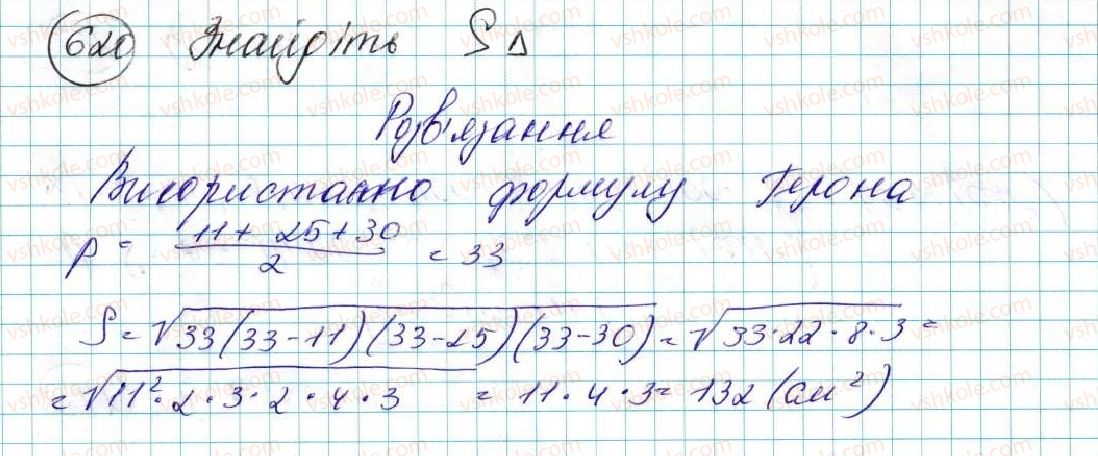 620 Знайдіть S Δ
Розв'язання
Використаємо формулу Герона
p = (11 + 25 + 30)/2 = 33
S = √(33(33-11)(33-25)(33-30)) = √(33·22·8·3) =
= √(11²·2·3·2·4·3) = 11·4·3 = 132 (см²)